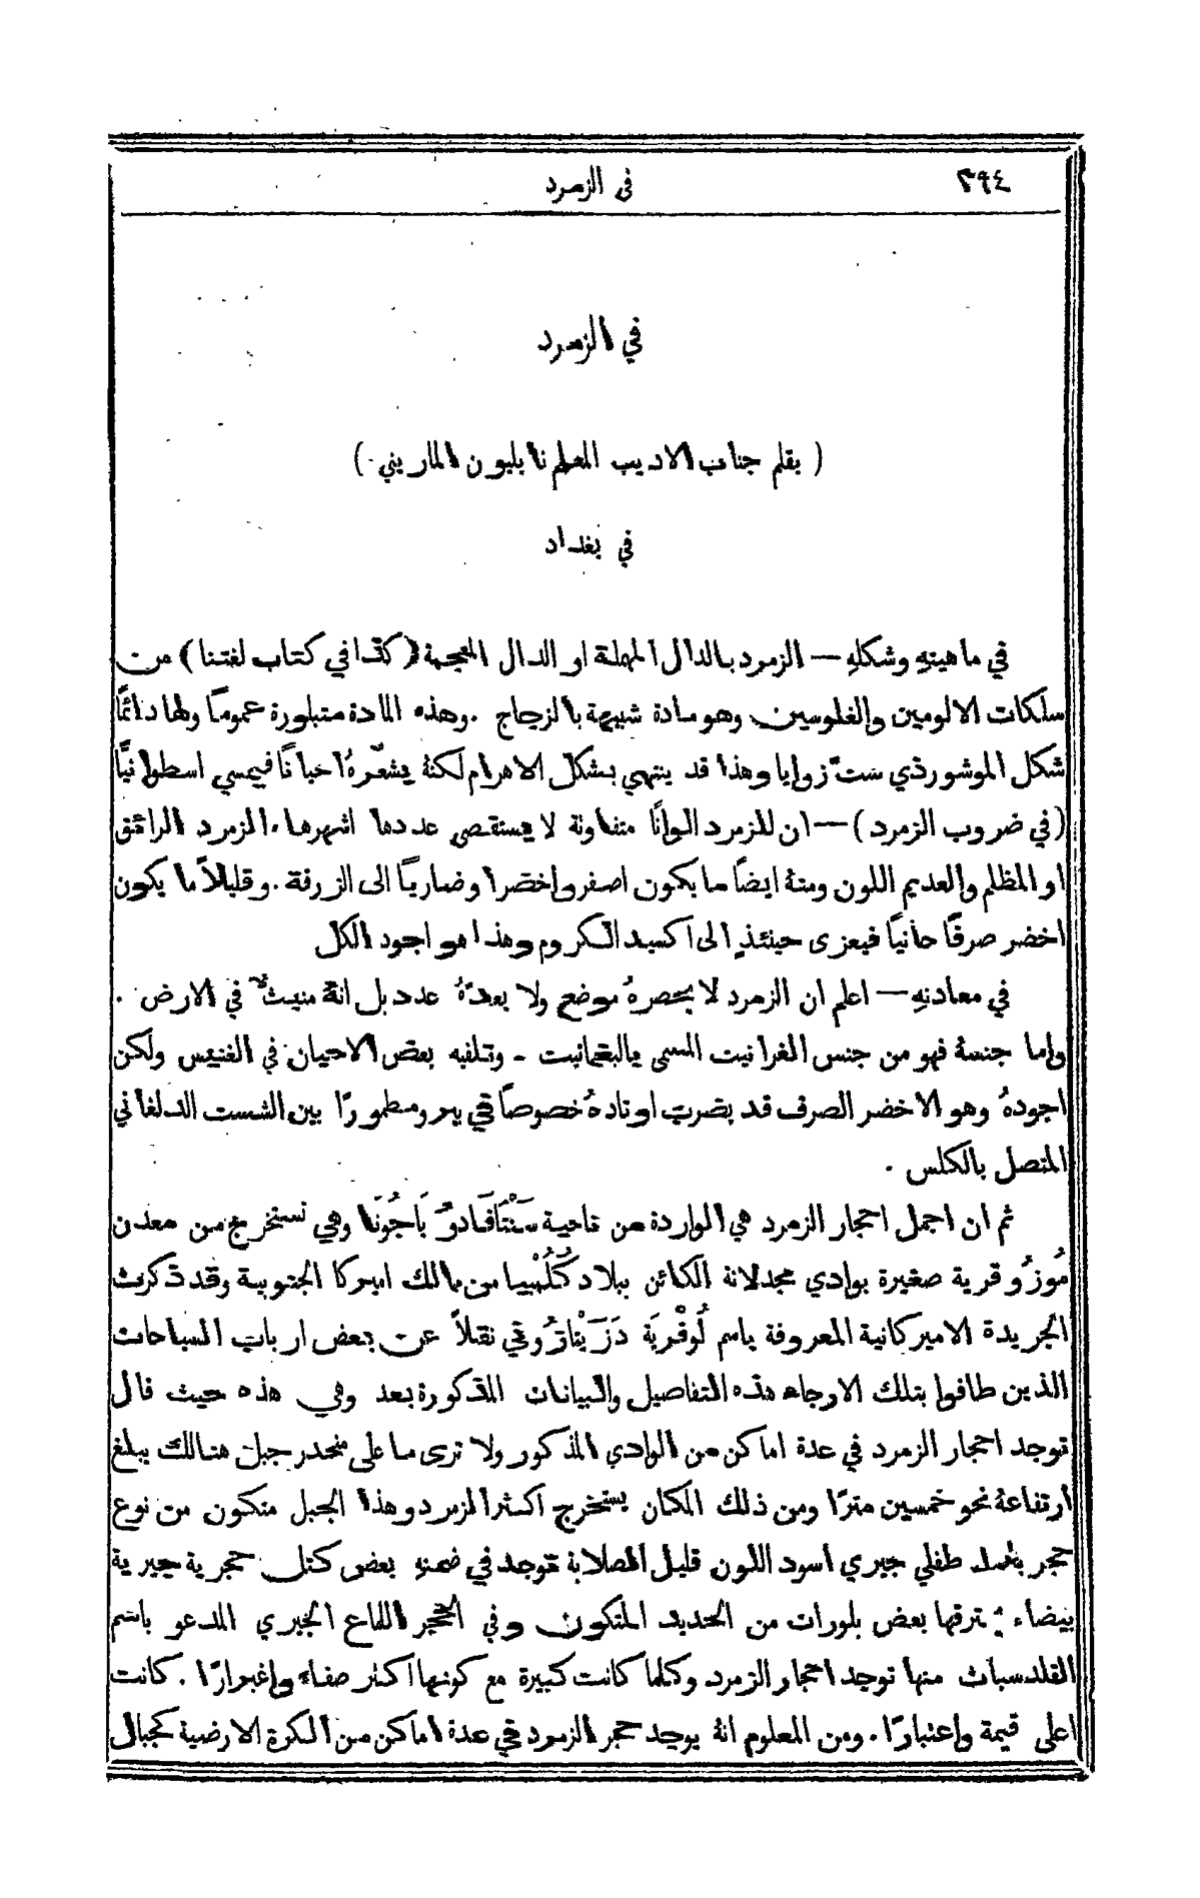 ٣٩٤
في الزمرد
في الزمرد
( بقلم جناب الاديب المعلم نابليون الماريني )
في بغداد
في ماهيتهِ وشكلهِ — الزمرد بالدال المهملة او الدال المعجمة (كذا في كتاب لغتنا) من
سلكات الالومين والغلوسين وهو مادة شبيهة بالزجاج . وهذه المادة متبلورة عموماً ولها دائماً
شكل الموشور ذي ست زوايا وهذا قد ينتهي بشكل الاهرام لكنهُ يشعّرهُ احياناً فيمسي اسطوانيّاً
(في ضروب الزمرد) — ان للزمرد الواناً متفاوتة لا يستقصى عددها اشهرها . الزمرد الرائق
او المظلم والعديم اللون ومنهُ ايضاً ما يكون اصفر واخضرا وضارباً الى الزرقة . وقليلاً ما يكون
اخضر صرفاً حانياً فيعزى حينئذٍ الى اكسيد الكروم وهذا هو اجود الكل
في معادنهِ — اعلم ان الزمرد لا يحصرهُ موضع ولا يعدّهُ عدد بل انهُ منبثٌّ في الارض .
واما جنسهُ فهو من جنس الغرانيت المسمى بالبغمانيت - وتلفيه بعض الاحيان في الغنيس ولكن
اجودهُ وهو الاخضر الصرف قد يضرب اوتادهُ خصوصاً في يرو مطموراً بين الشست الدلغاني
المتصل بالكلس .
ثم ان اجمل احجار الزمرد هي الواردة من ناحية سَنْتَافَادُو بَاجُونَا وهي تستخرج من معدن
مُوزُو قرية صغيرة بوادي مجدلانة الكائن ببلاد كُلُمْبيا من ممالك اميركا الجنوبية وقد ذكرت
الجريدة الاميركانية المعروفة باسم لُوفْريَة دَزَيْتاتُزُوني نقلاً عن بعض ارباب السياحات
الذين طافوا بتلك الارجاء هذه التفاصيل والبيانات المذكورة بعد وهي هذه حيث قال
توجد احجار الزمرد في عدة اماكن من الوادي المذكور ولا ترى ما على منحدر جبل هنالك يبلغ
ارتفاعهُ نحو خمسين متراً ومن ذلك المكان يستخرج اكثر الزمرد وهذا الجبل متكون من نوع
حجر طفلي جيري اسود اللون قليل الصلابة توجد في ضمنهِ بعض كتل حجرية جيرية
بيضاء بعض بلورات من الحديد المتكون وفي الحجر اللماع الجيري المدعو باسم
الفلدسباث منها توجد احجار الزمرد وكلما كانت كبيرة مع كونها اكثر صفاء واغبراراً . كانت
اعلى قيمة واعتباراً . ومن المعلوم انهُ يوجد حجر الزمرد في عدة اماكن من الكرة الارضية كجبال